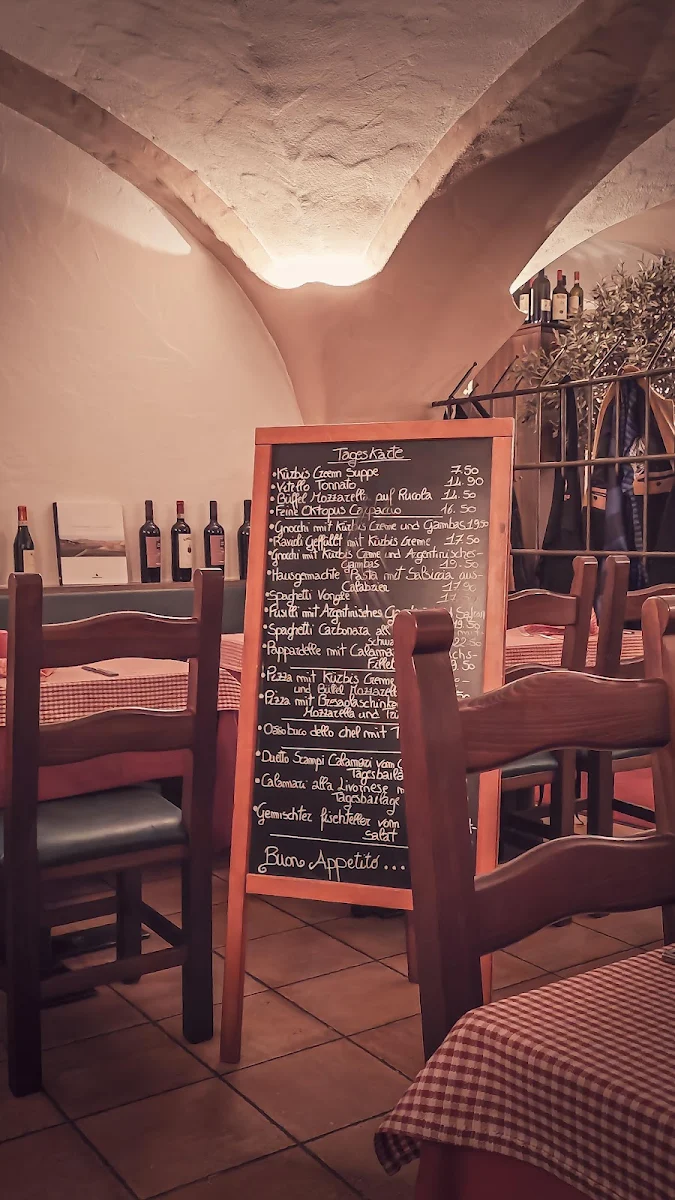 Tageskarte
•Kürbis Creem Suppe 7.50
•Vitello Tonnato 14.90
•Büffel Mozzarella auf Rucola 14.50
•Feine Oktopus Carpaccio 16.50
Gnocchi mit Kürbis Creme und Gambas 19.50
•Ravioli Gefüllt mit Kürbis Creme 17.50
•Gnochi mit Kürbis Creme und Argentinisches-
Gambas 19.50
•Hausgemachte Pasta mit Salsiccia aus-
Calabrien 17.90
•Spaghetti Vongole 17.
•Fusilli mit Argentinisches
•Spaghetti Carbonara all
•Pappardelle mit Calama
Filet 9.50
•Pizza mit Kürbis Creme
und Büffel Mozzarell
•Pizza mit Bresaolaschinken
Mozzarella und
•Ossobuco dello chef mit T
•Duetto Stampi Calamari vom G
Tagesbeila
•Calamari alla Livornese m
Tagesbailage
•Gemischter fischteller vom
Salat
Buon Appetito...